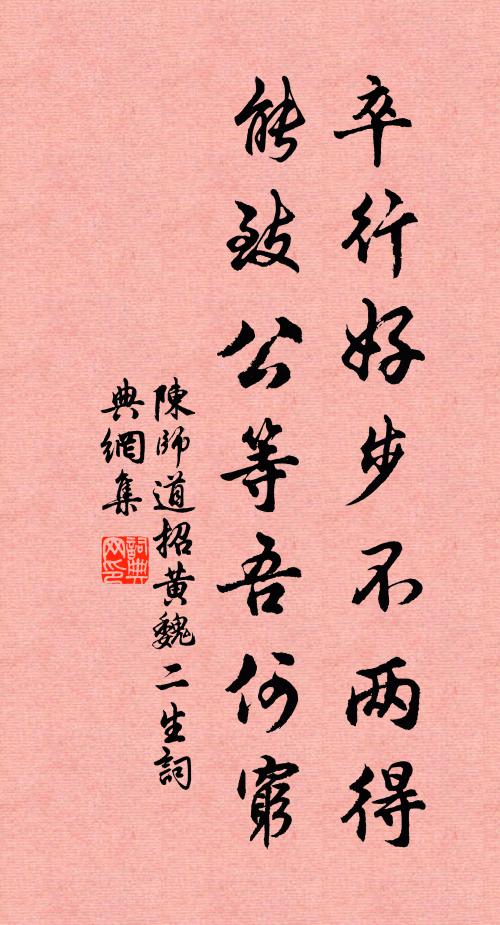 卒行好步不两得
能致公等吾何窮
陳師道招黃魏二生詞
典網集
詞典
网印